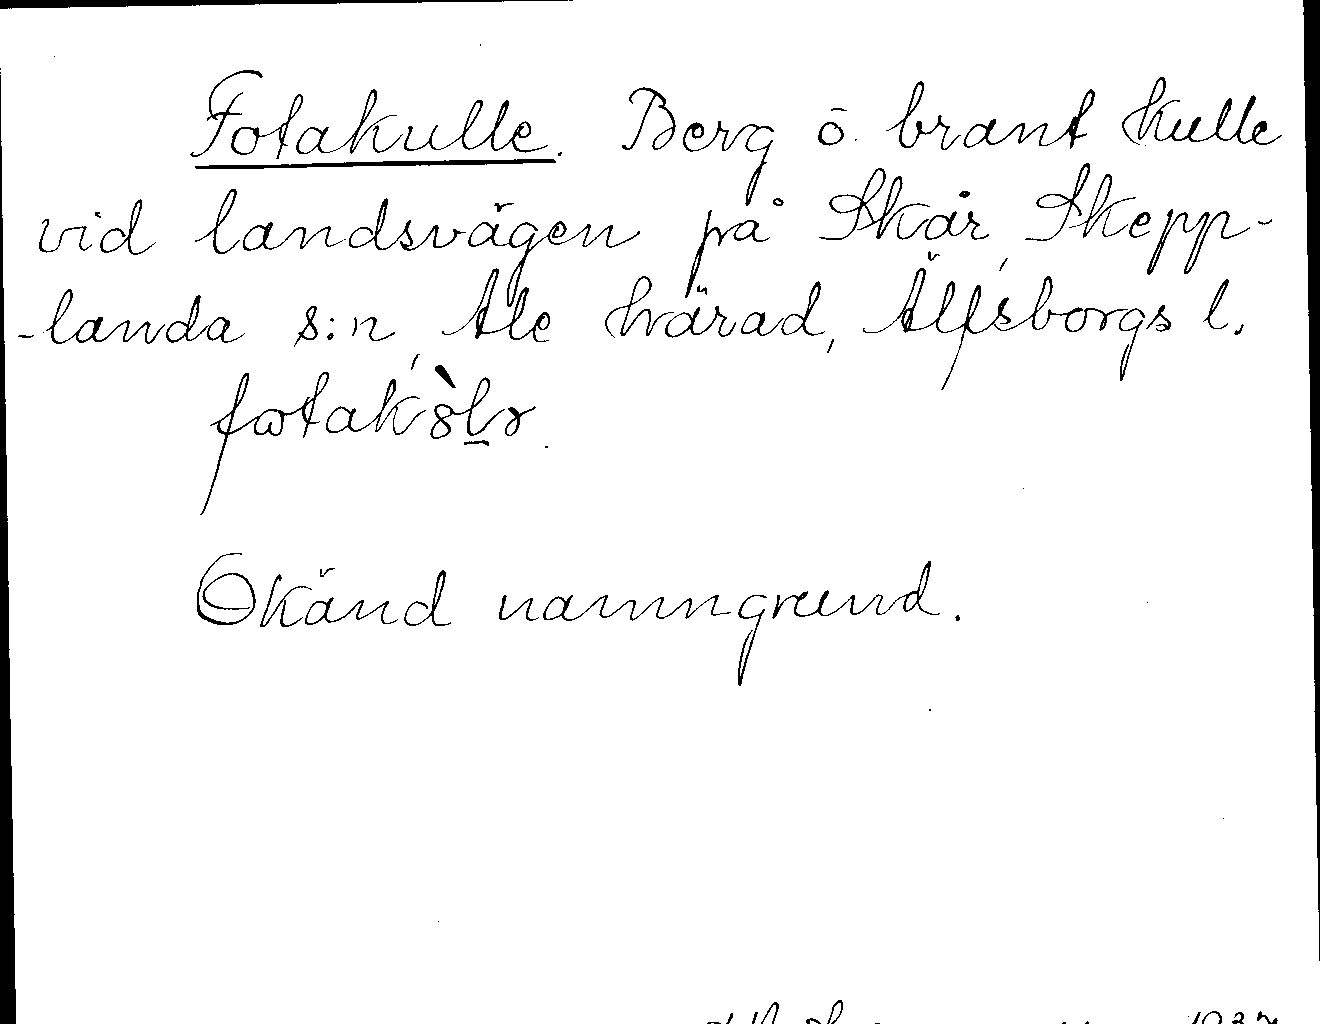 Fotakulle. Berg o. brant kulle
vid landsvägen på Skår, Skepp-
-landa s:n, Ale härad, Älfsborgs l.
Okänd namngrund.